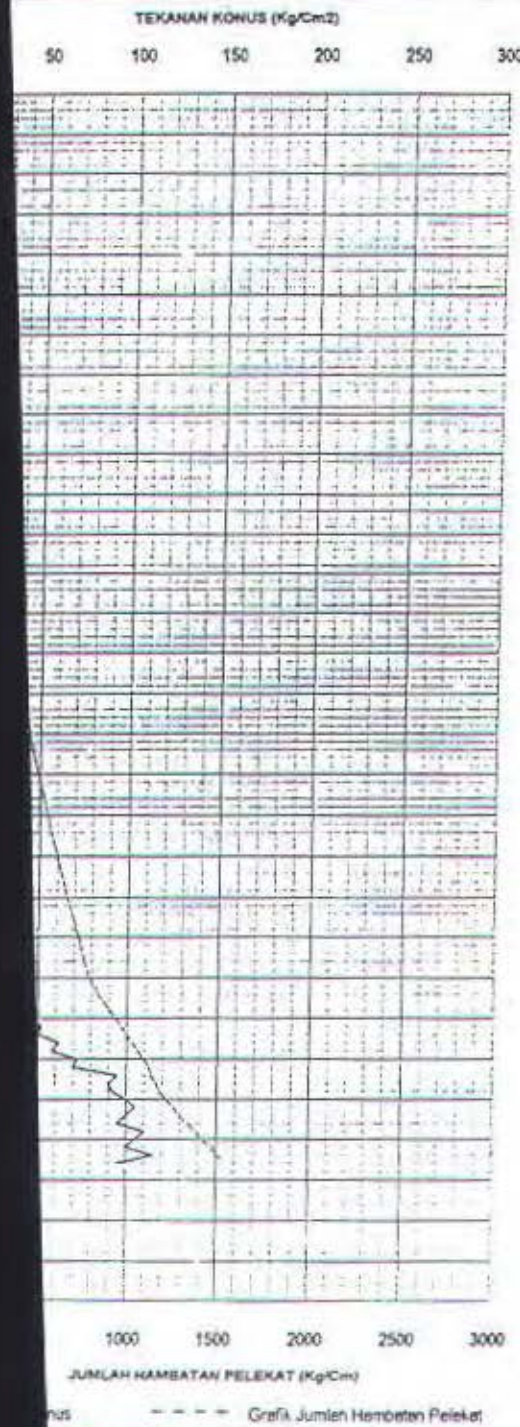 TEKANAN KONUS (Kg/Cm2)
50 100 150 200 250 300
1000 1500 2000 2500 3000
JUMLAH HAMBATAN PELEKAT (Kg/Cm)
nus - - - - Grafik Jumlah Hambatan Pelekat